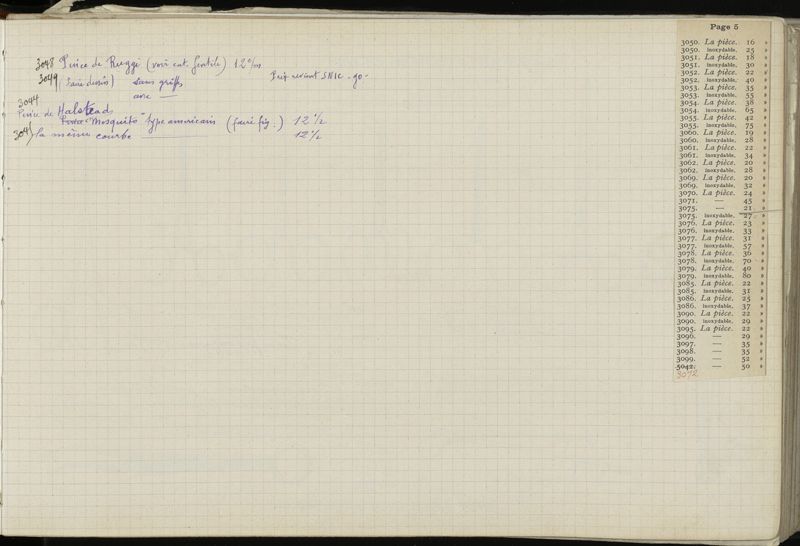 3048 Pince de Ruggi (voir cat. Gentile) 12 c/m
3049 (sans dessin) sans griffes Prix revient SNIC - 90 -
avec —
3044
Pince de Halsteads
"Mosquito" type américain (faire fig.) 12 1/2
la même courbe — 12 1/2
Page 5
3050. La pièce. 16 »
3050. Inoxydable. 25 »
3051. La pièce. 18 »
3051. Inoxydable. 30 »
3052. La pièce. 22 »
3052. Inoxydable. 40 »
3053. La pièce. 35 »
3053. Inoxydable. 55 »
3054. La pièce. 38 »
3054. Inoxydable. 65 »
3055. La pièce. 42 »
3055. Inoxydable. 75 »
3060. La pièce. 19 »
3060. Inoxydable. 28 »
3061. La pièce. 22 »
3061. Inoxydable. 34 »
3062. La pièce. 20 »
3062. Inoxydable. 28 »
3069. La pièce. 20 »
3069. Inoxydable. 32 »
3070. La pièce. 24 »
3071. — 45 »
3075. — 21 »
3075. Inoxydable. 27 »
3076. La pièce. 23 »
3076. Inoxydable. 33 »
3077. La pièce. 31 »
3077. Inoxydable. 57 »
3078. La pièce. 36 »
3078. Inoxydable. 70 »
3079. La pièce. 40 »
3079. Inoxydable. 80 »
3085. La pièce. 22 »
3085. Inoxydable. 31 »
3086. La pièce. 25 »
3086. Inoxydable. 37 »
3090. La pièce. 22 »
3090. Inoxydable. 29 »
3095. La pièce. 22 »
3096. — 29 »
3097. — 35 »
3098. — 35 »
3099. — 52 »
5042. — 50 »
3072